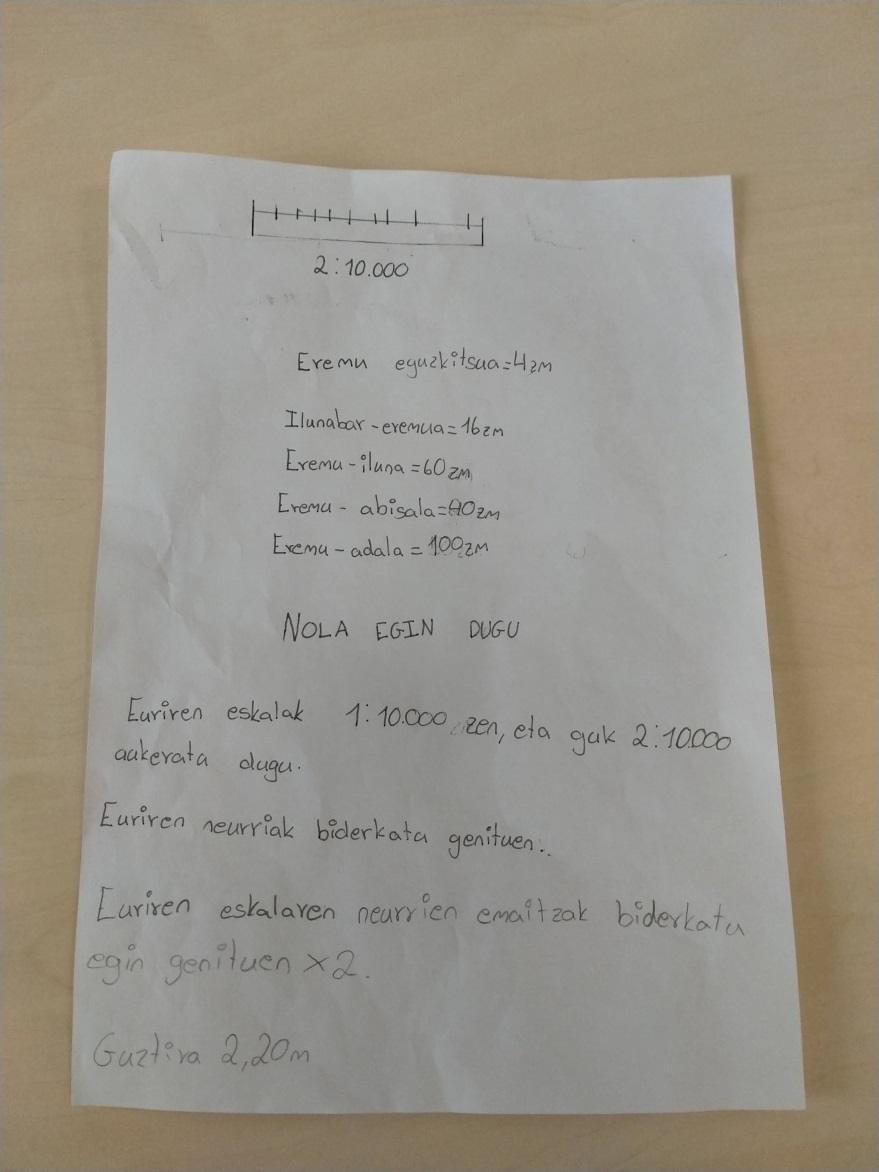 2:10.000
Eremu eguzkitsua=4zm
Ilunabar-eremua=16zm
Eremu-iluna=60zm
Eremu-abisala=40zm
Eremu-adala=100zm
NOLA EGIN DUGU
Euriren eskalak 1:10.000 zen, eta guk 2:10.000
aukeratu dugu.
Euriren neurriak biderkatu genituen..
Euriren eskalaren neurrien emaitzak biderkatu
egin genituen x2.
Guztira 2,20m